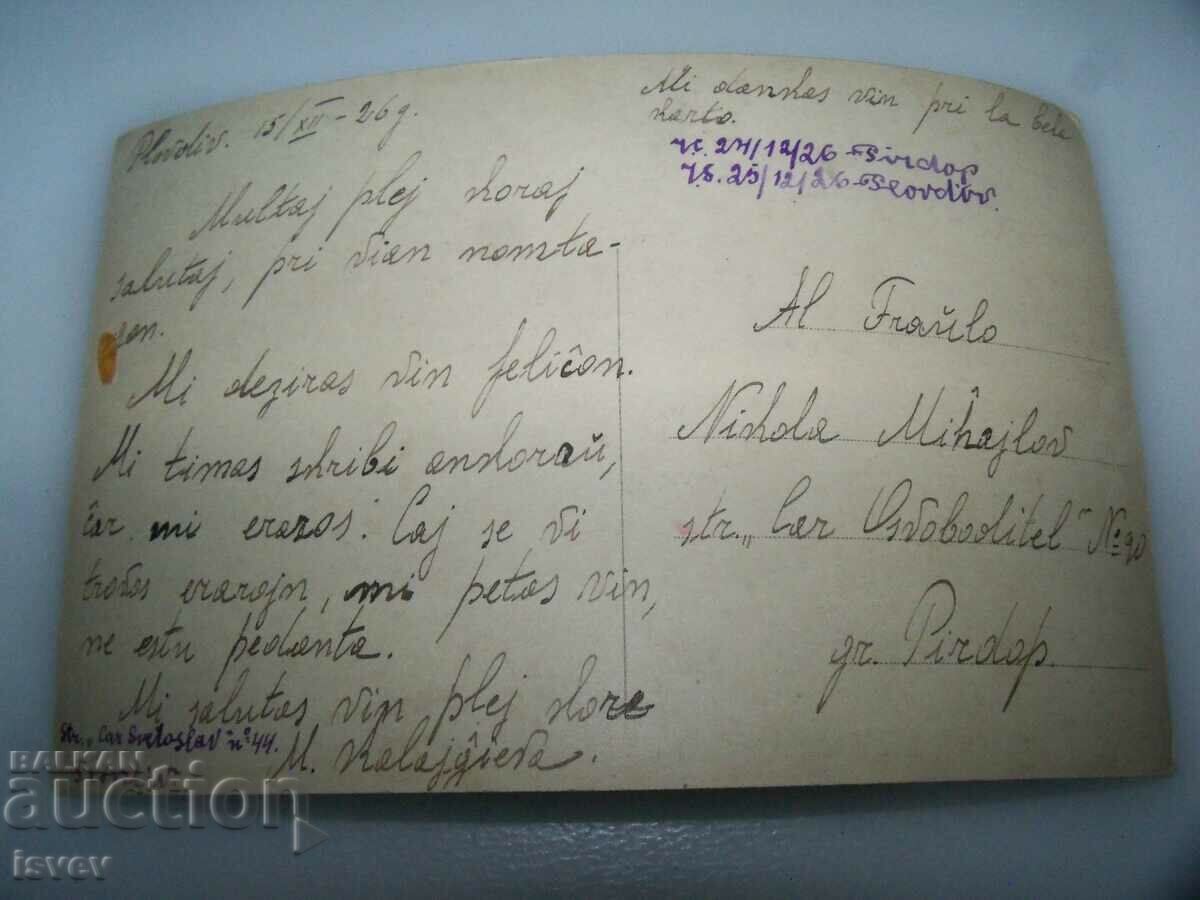 Plovdiv. 15/XII – 26 g.
Multaj plej koraj
salutaj, pri vian nomta-
gon.
Mi deziras vin feliĉon.
Mi timas skribi ankoraŭ,
ĉar mi eraros. Caj se vi
trovos erarojn, mi petas vin,
ne estu pedanta.
Mi salutas vin plej kore
M. Kalajĝieva.
Str. „Car Svetoslav" nº 44.
Mi dankas vin pri la bela
karto.
r. 24/12/26 – Pirdop
r.s. 25/12/26 – Plovdiv.
Al Fraŭlo
Nikola Miĥajlov
str. „Car Osvoboditel" № 90
gr. Pirdop.
BALKAN
auction
isvev